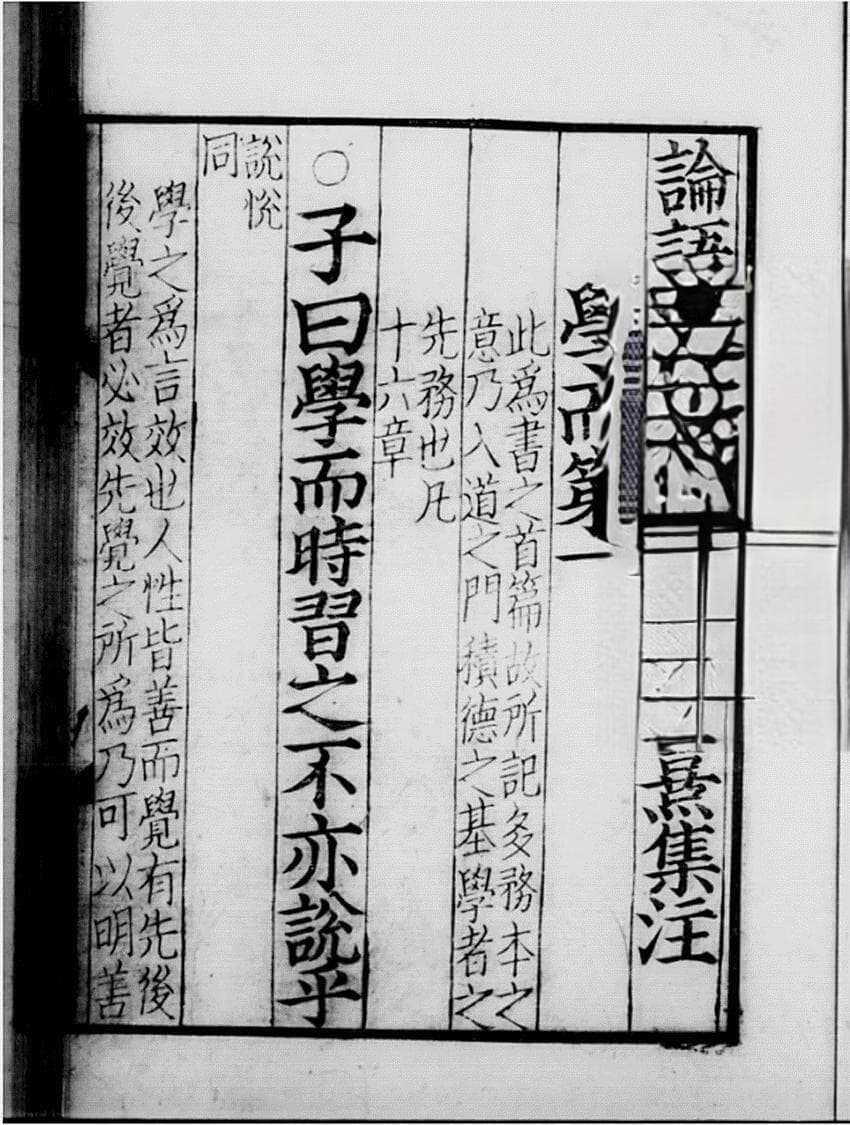 論語 熹集注
學而第一
此爲書之首篇故所記多務本之
意乃入道之門積德之基學者之
先務也凡
十六章
○子曰學而時習之不亦說乎
說悅
同
學之爲言效也人性皆善而覺有先後
後覺者必效先覺之所爲乃可以明善